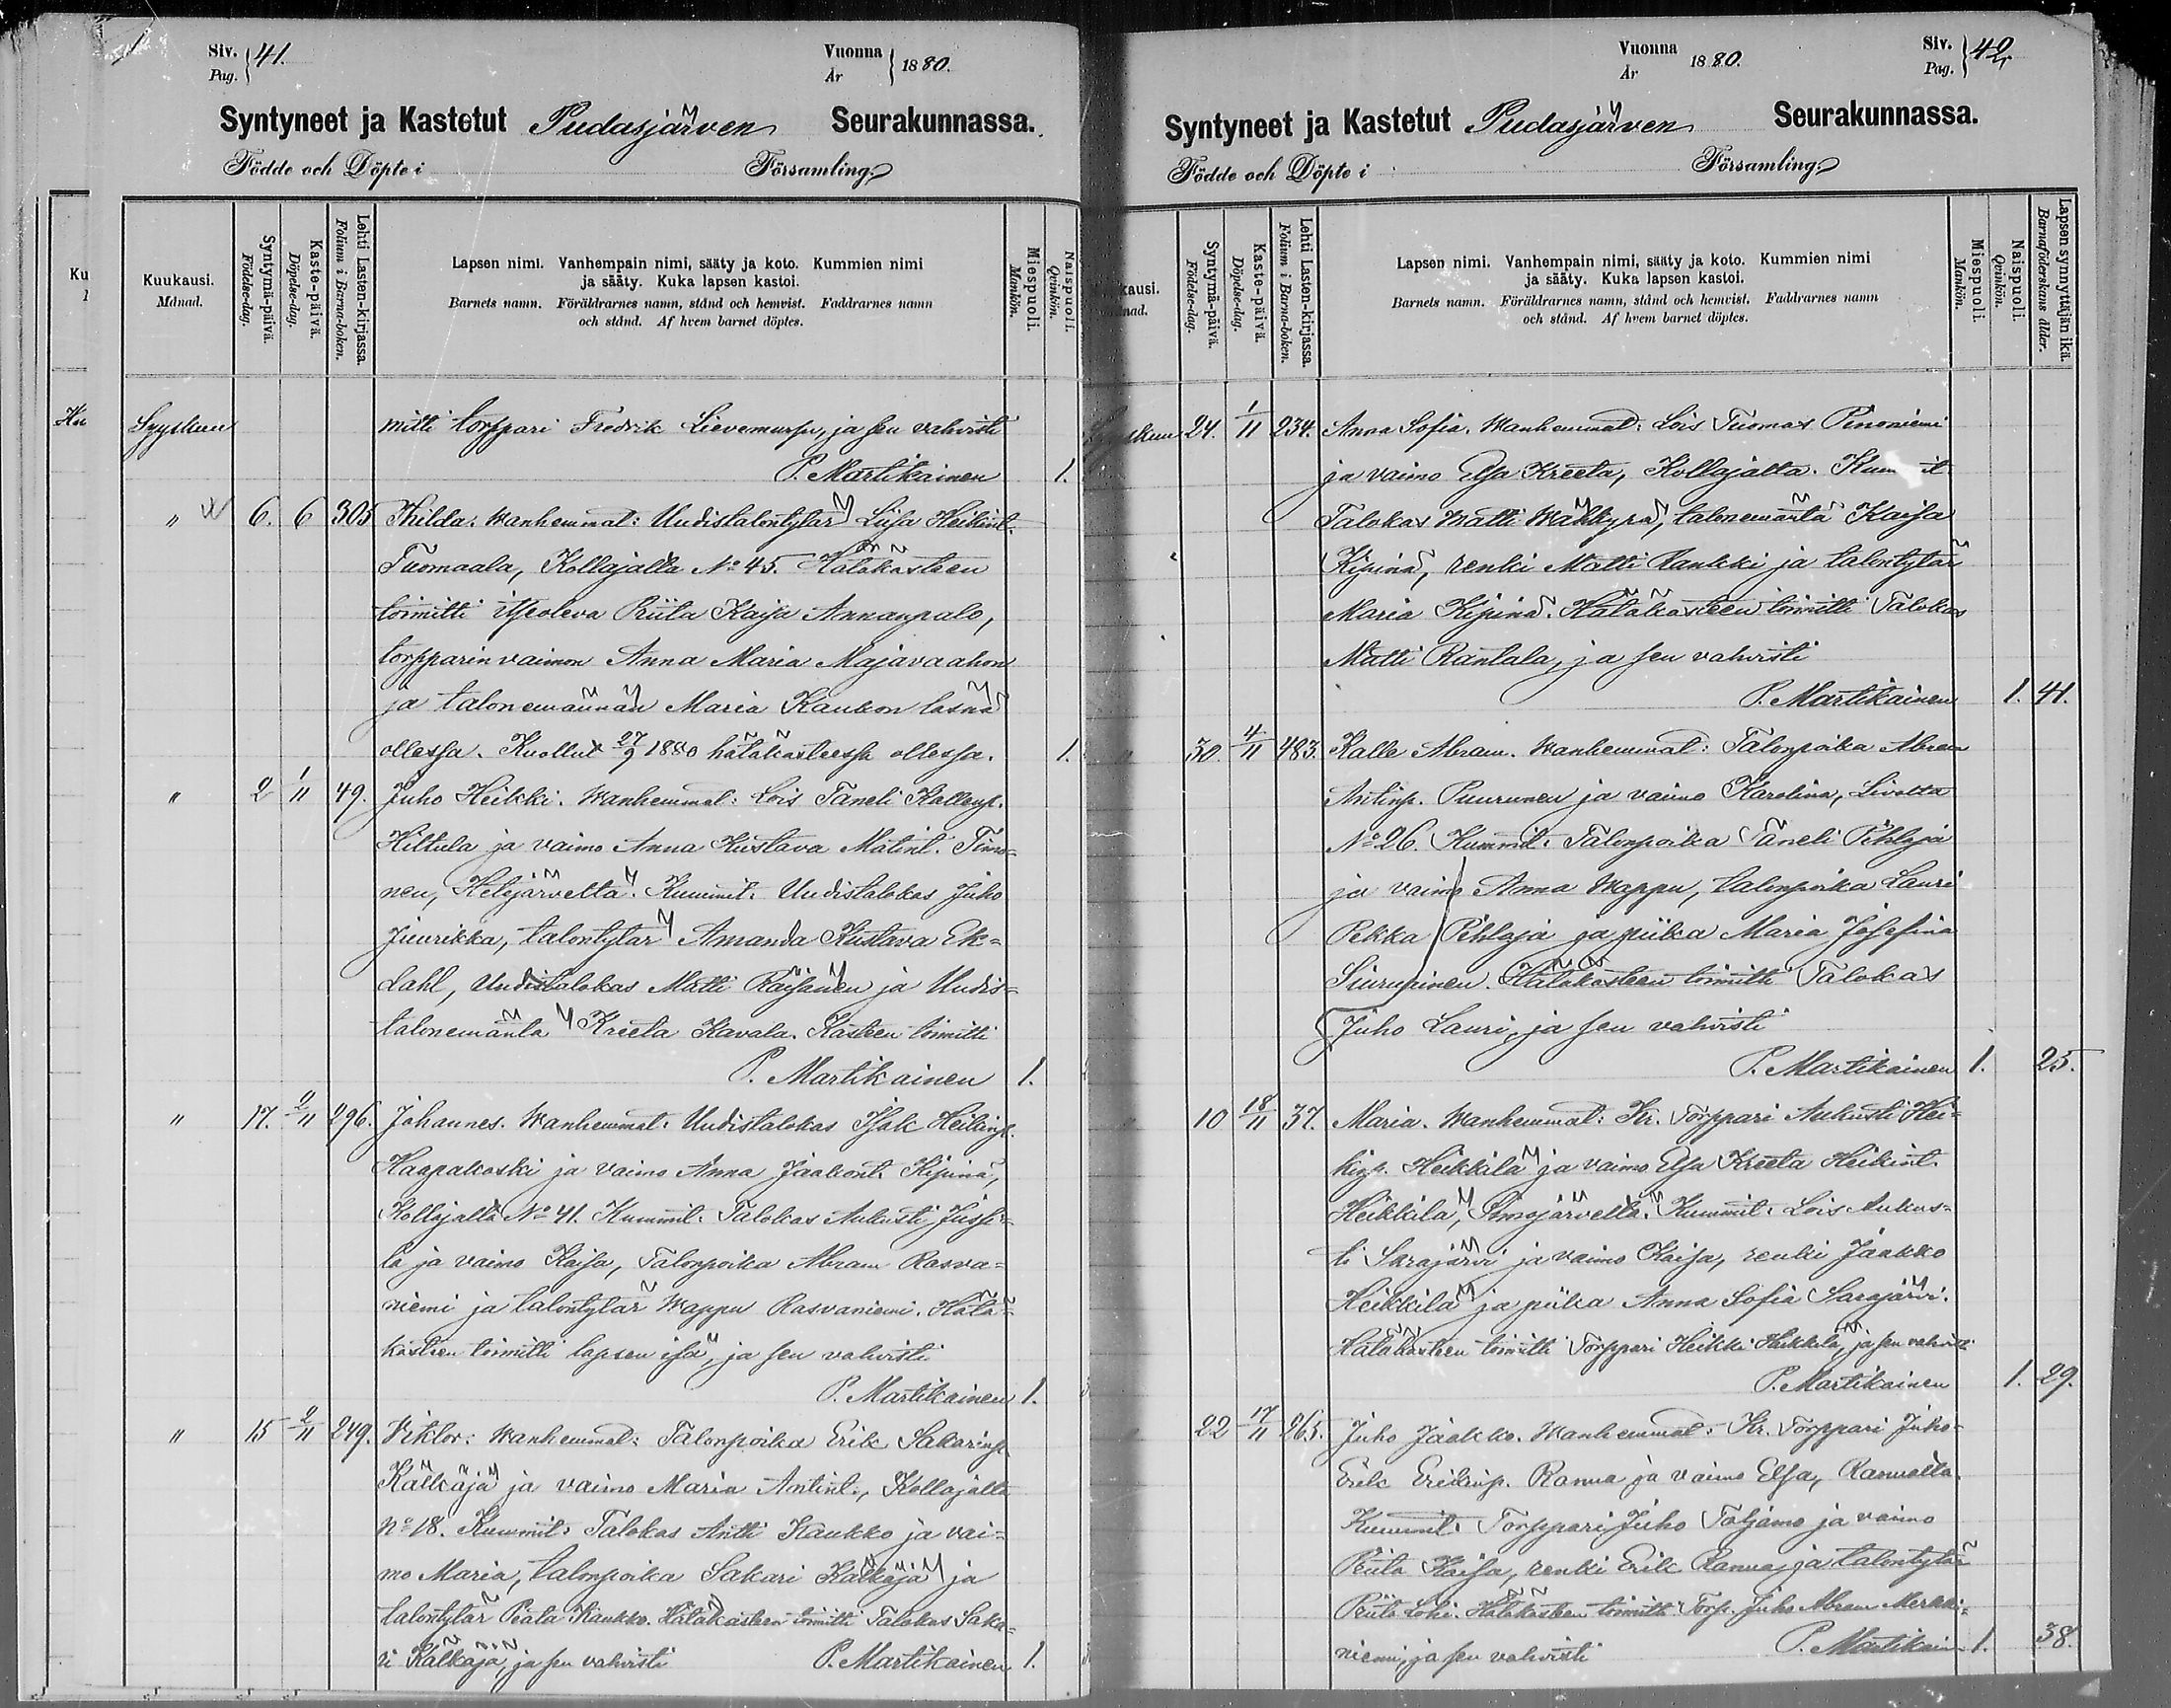 Siv. 41.
Pag.
Vuonna 1880.
År
Syntyneet ja Kastetut Pudasjärven Seurakunnassa.
Födde och Döpte i Församling
Ku
Kuukausi.
Månad.
Syntymä-päivä.
Födelse-dag.
Kaste-päivä.
Döpelse-dag.
Lehti Lasten-kirjassa.
Folium i Barna-boken.
Lapsen nimi. Vanhempain nimi, sääty ja koto. Kummien nimi
ja sääty. Kuka lapsen kastoi.
Barnets namn. Föräldrarnes namn, stånd och hemvist. Faddrarnes namn
och stånd. Af hvem barnet döptes.
Miespuoli.
Mankön.
Naispuoli.
Qvinkön.
Syyskuu mitti torppari Fredrik Lievemurpu, ja sen vahvisti
P. Martikainen 1.
" 6. 6 305 Hilda. Wanhemmat: Uudistalontytär Liisa Heikint.
Tuomaala, Kollajalta No 45. Hätäkasteen
toimitti itseoleva Riita Kaisa Annanpalo,
torpparin vaimon Anna Maria Majavaahon
ja talonemännän Maria Kaukon läsnä
ollessa. Kuollut 27/9 1880 hätäkasteessa ollessa. 1.
" 2 1/11 49. Juho Heikki. Wanhemmat: Lois Taneli Kallenp.
Hiltula ja vaimo Anna Kustava Matint. Timo=
nen, Hetejärveltä. Kummit: Uudistalokas Juho
Juurikka, talontytär Amanda Kustava Ek=
dahl, Uudistalokas Matti Räisänen ja Uudis=
talonemäntä Kreeta Kavala. Kasteen toimitti
P. Martikainen 1.
" 17. 2/11 296. Johannes. Wanhemmat: Uudistalokas Isak Heikinp.
Haapakoski ja vaimo Anna Jaakont. Kipinä,
Kollajalta No 41. Kummit: Talokas Aukusti Jussi=
la ja vaimo Kaisa, Talonpoika Abram Rasva=
niemi ja talontytär Wappu Rasvaniemi. Hätä=
kasteen toimitti lapsen isä, ja sen vahvisti
P. Martikainen 1.
" 15 2/11 249. Viktor: Wanhemmat: Talonpoika Erik Sakarinp.
Kälkäjä ja vaimo Maria Antint., Kollajalta
No 18. Kummit: Talokas Antti Kaukko ja vai=
mo Maria, talonpoika Sakari Kälkäjä ja
talontytär Peata Kaukko. Hätäkasteen toimitti Talokas Saka=
ri Kälkäjä, ja sen vahvisti P. Martikainen 1.
Vuonna 1880.
År
Siv. 42,
Pag.
Syntyneet ja Kastetut Pudasjärven Seurakunnassa.
Födde och Döpte i Församling
kausi.
nad.
Syntymä-päivä.
Födelse-dag.
Kaste-päivä.
Döpelse-dag.
Lehti Lasten-kirjassa.
Folium i Barna-boken.
Lapsen nimi. Vanhempain nimi, sääty ja koto. Kummien nimi
ja sääty. Kuka lapsen kastoi.
Barnets namn. Föräldrarnes namn, stånd och hemvist. Faddrarnes namn
och stånd. Af hvem barnet döptes.
Miespuoli.
Mankön.
Naispuoli.
Qvinkön.
Lapsen synnyttäjän ikä.
Barnaföderskans ålder.
24. 1/11 234. Anna Sofia. Wanhemmat: Lois Tuomas Pinoniemi
ja vaimo Elsa Kreeta, Kollajalta. Kummit
Talokas Matti Wäkkyrä, talonemäntä Kaisa
Kipinä, renki Matti Rankki ja talontytär
Maria Kipinä. Hätäkasteen toimitti Talokas
Matti Rantala, ja sen vahvisti
P. Martikainen 1. 41.
" 30. 4/11 483. Kalle Abram. Wanhemmat: Talonpoika Abram
Antinp. Puurunen ja vaimo Karolina, Livolta
No 26. Kummit: Talonpoika Taneli Pihlaja
ja vaimo Anna Wappu, talonpoika Lauri
Pekka Pihlaja ja piika Maria Josefina
Siurupinen. Hätäkasteen toimitti Talokas
Juho Lauri, ja sen vahvisti
P. Martikainen 1. 25.
10 18/11 37. Maria. Wanhemmat: Kr. Torppari Aukusti Hei=
kinp. Heikkilä ja vaimo Elsa Kreeta Heikint.
Heikkilä, Simojärveltä. Kummit: Lois Aukus=
ti Sarajärvi ja vaimo Kaisa, renki Jaakko
Heikkilä ja piika Anna Sofia Sarajärvi.
Hätäkasteen toimitti Torppari Heikki Heikkilä, ja sen vahvisti
P. Martikainen 1. 29.
22 17/11 265. Juho Jaakko. Wanhemmat: Kr. Torppari Juho=
Erik Erikinp. Ranua ja vaimo Elsa, Ranualta.
Kummit: Torppari Juho Taljamo ja vaimo
Riita Kaisa, renki Erik Ranua, ja talontytär
Riita Lohi. Hätäkasteen toimitti Torp. Juho Abram Merkki=
niemi, ja sen vahvisti P. Martikain 1. 38.